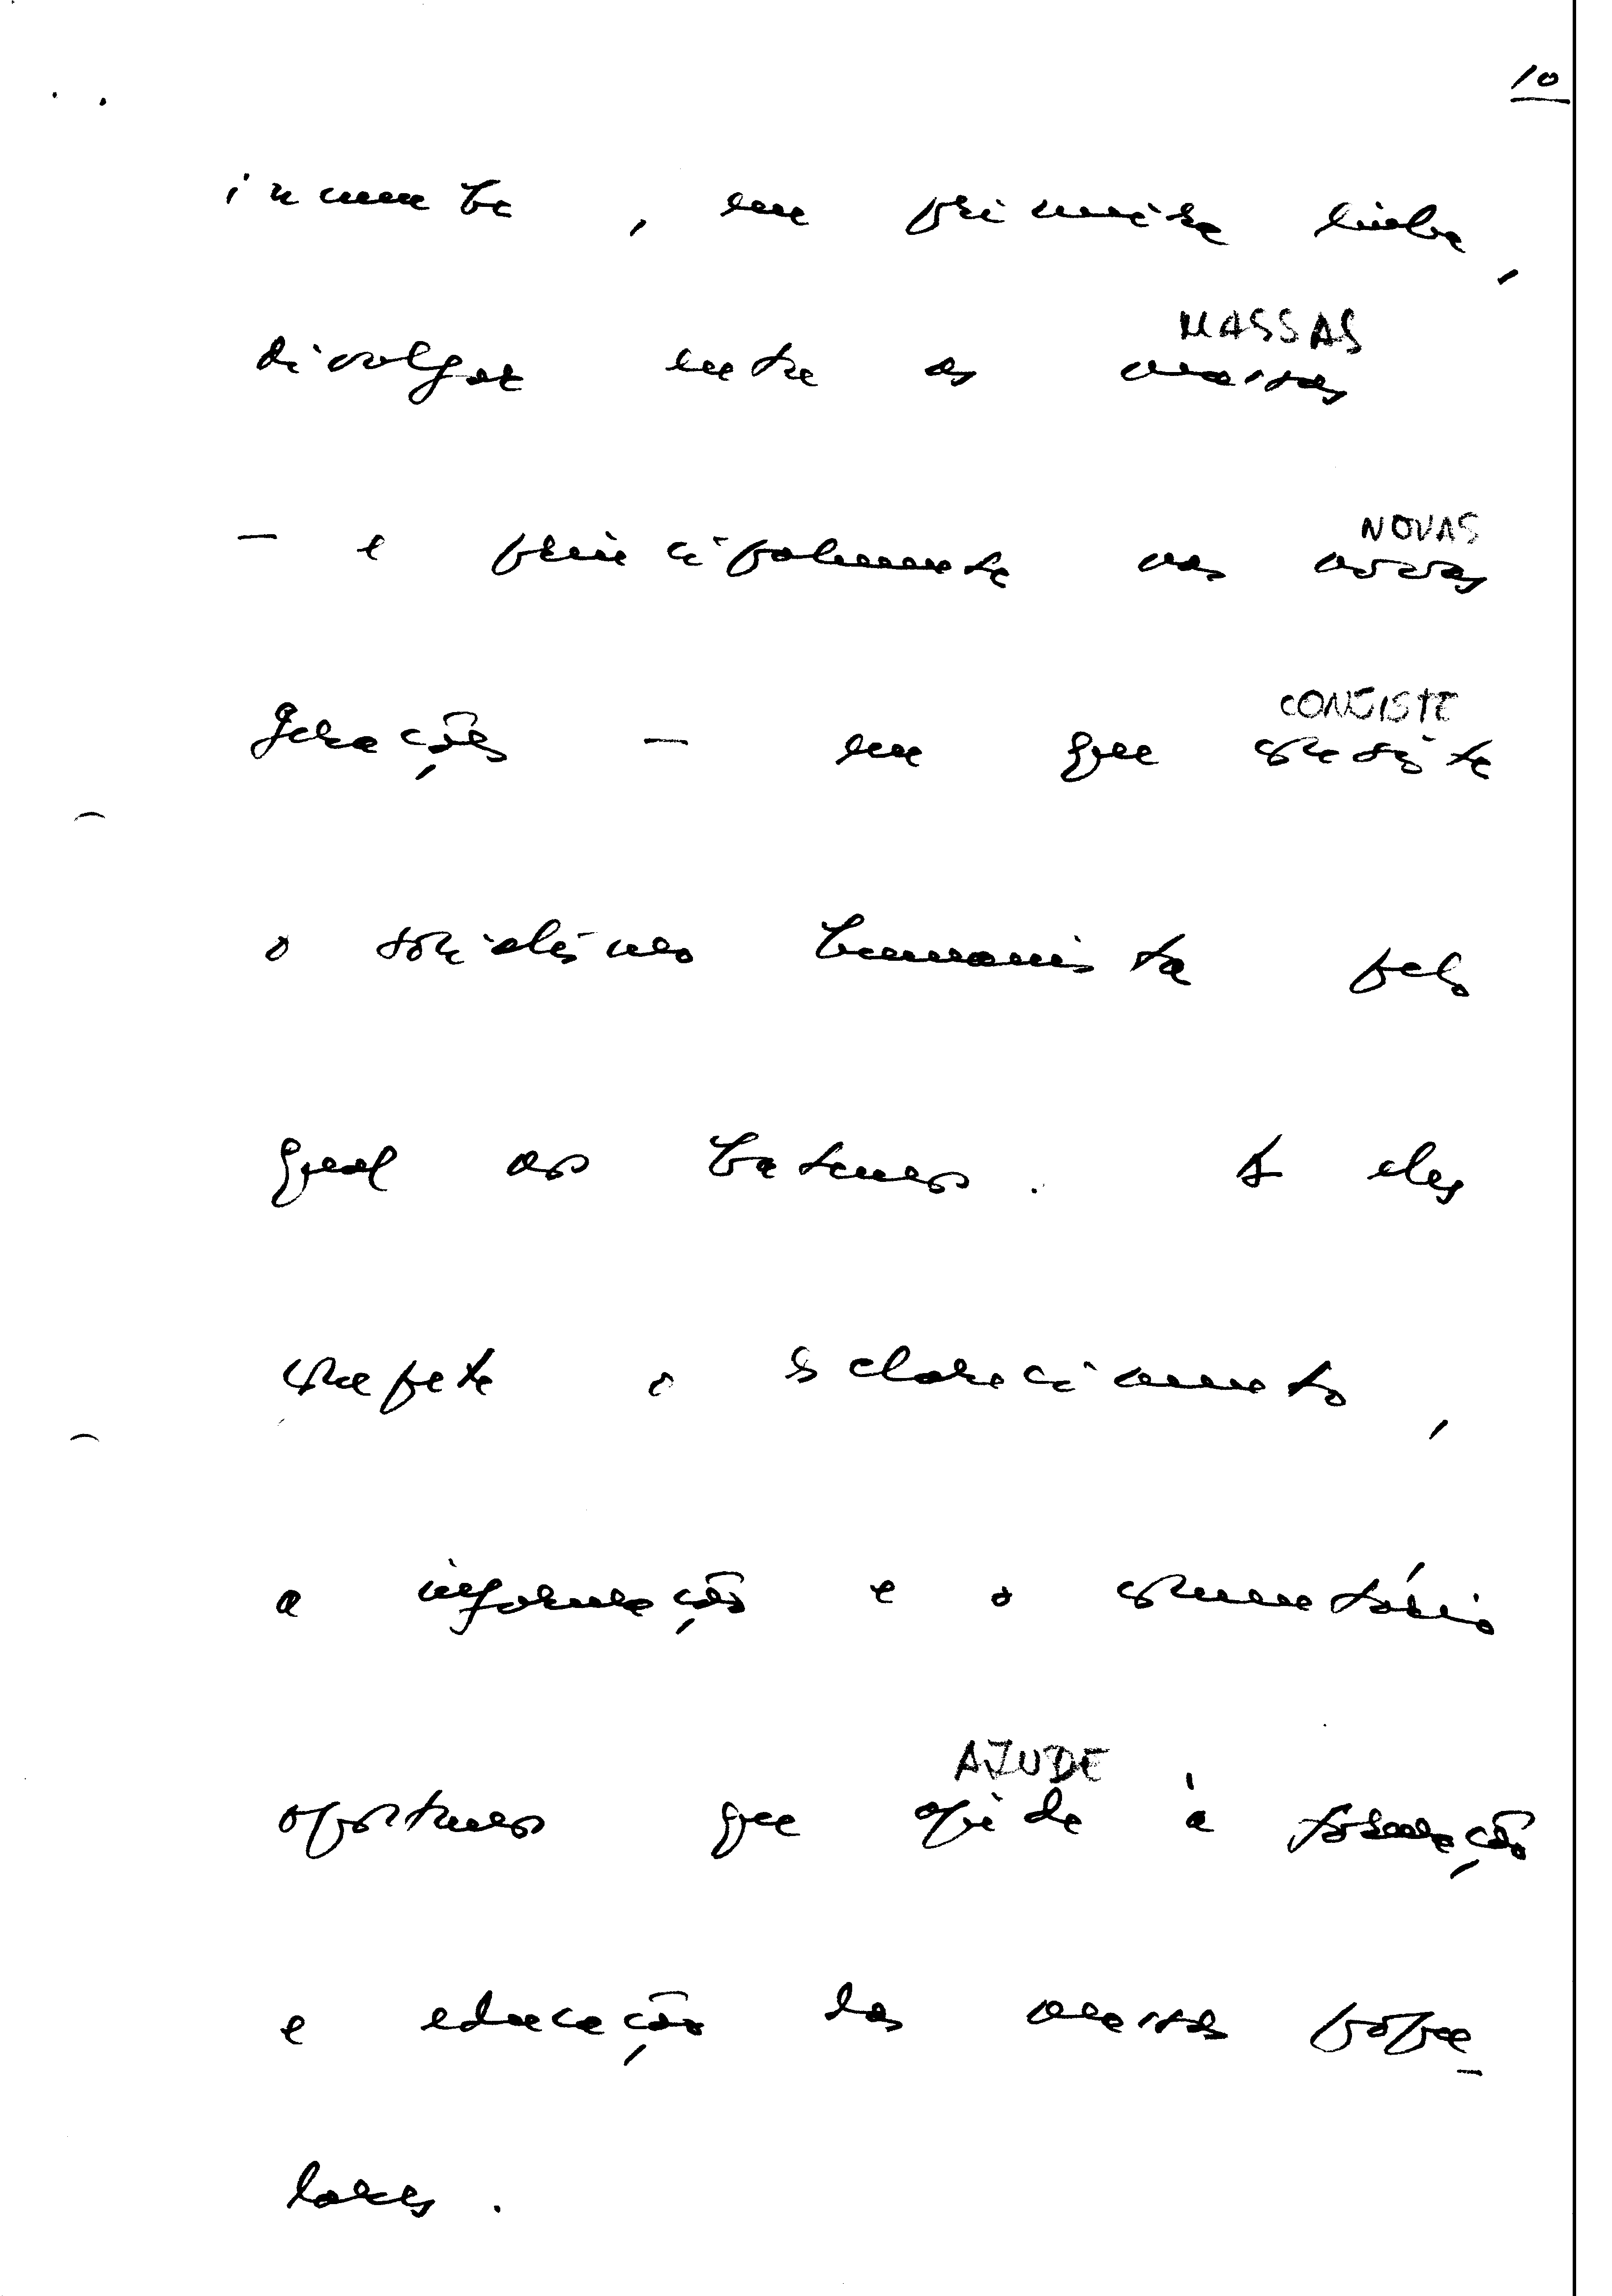 10
incumbe, em primeira linha,
MASSAS
divulgar entre as massas
NOVAS
— e principalmente nas novas
CONSISTE
gerações — em que consiste
o socialismo humanista pelo
qual nos batemos. A eles
compete o esclarecimento,
a informação e o comentário
AJUDE
oportuno que ajude à formação
e educação das massas popu-
lares.